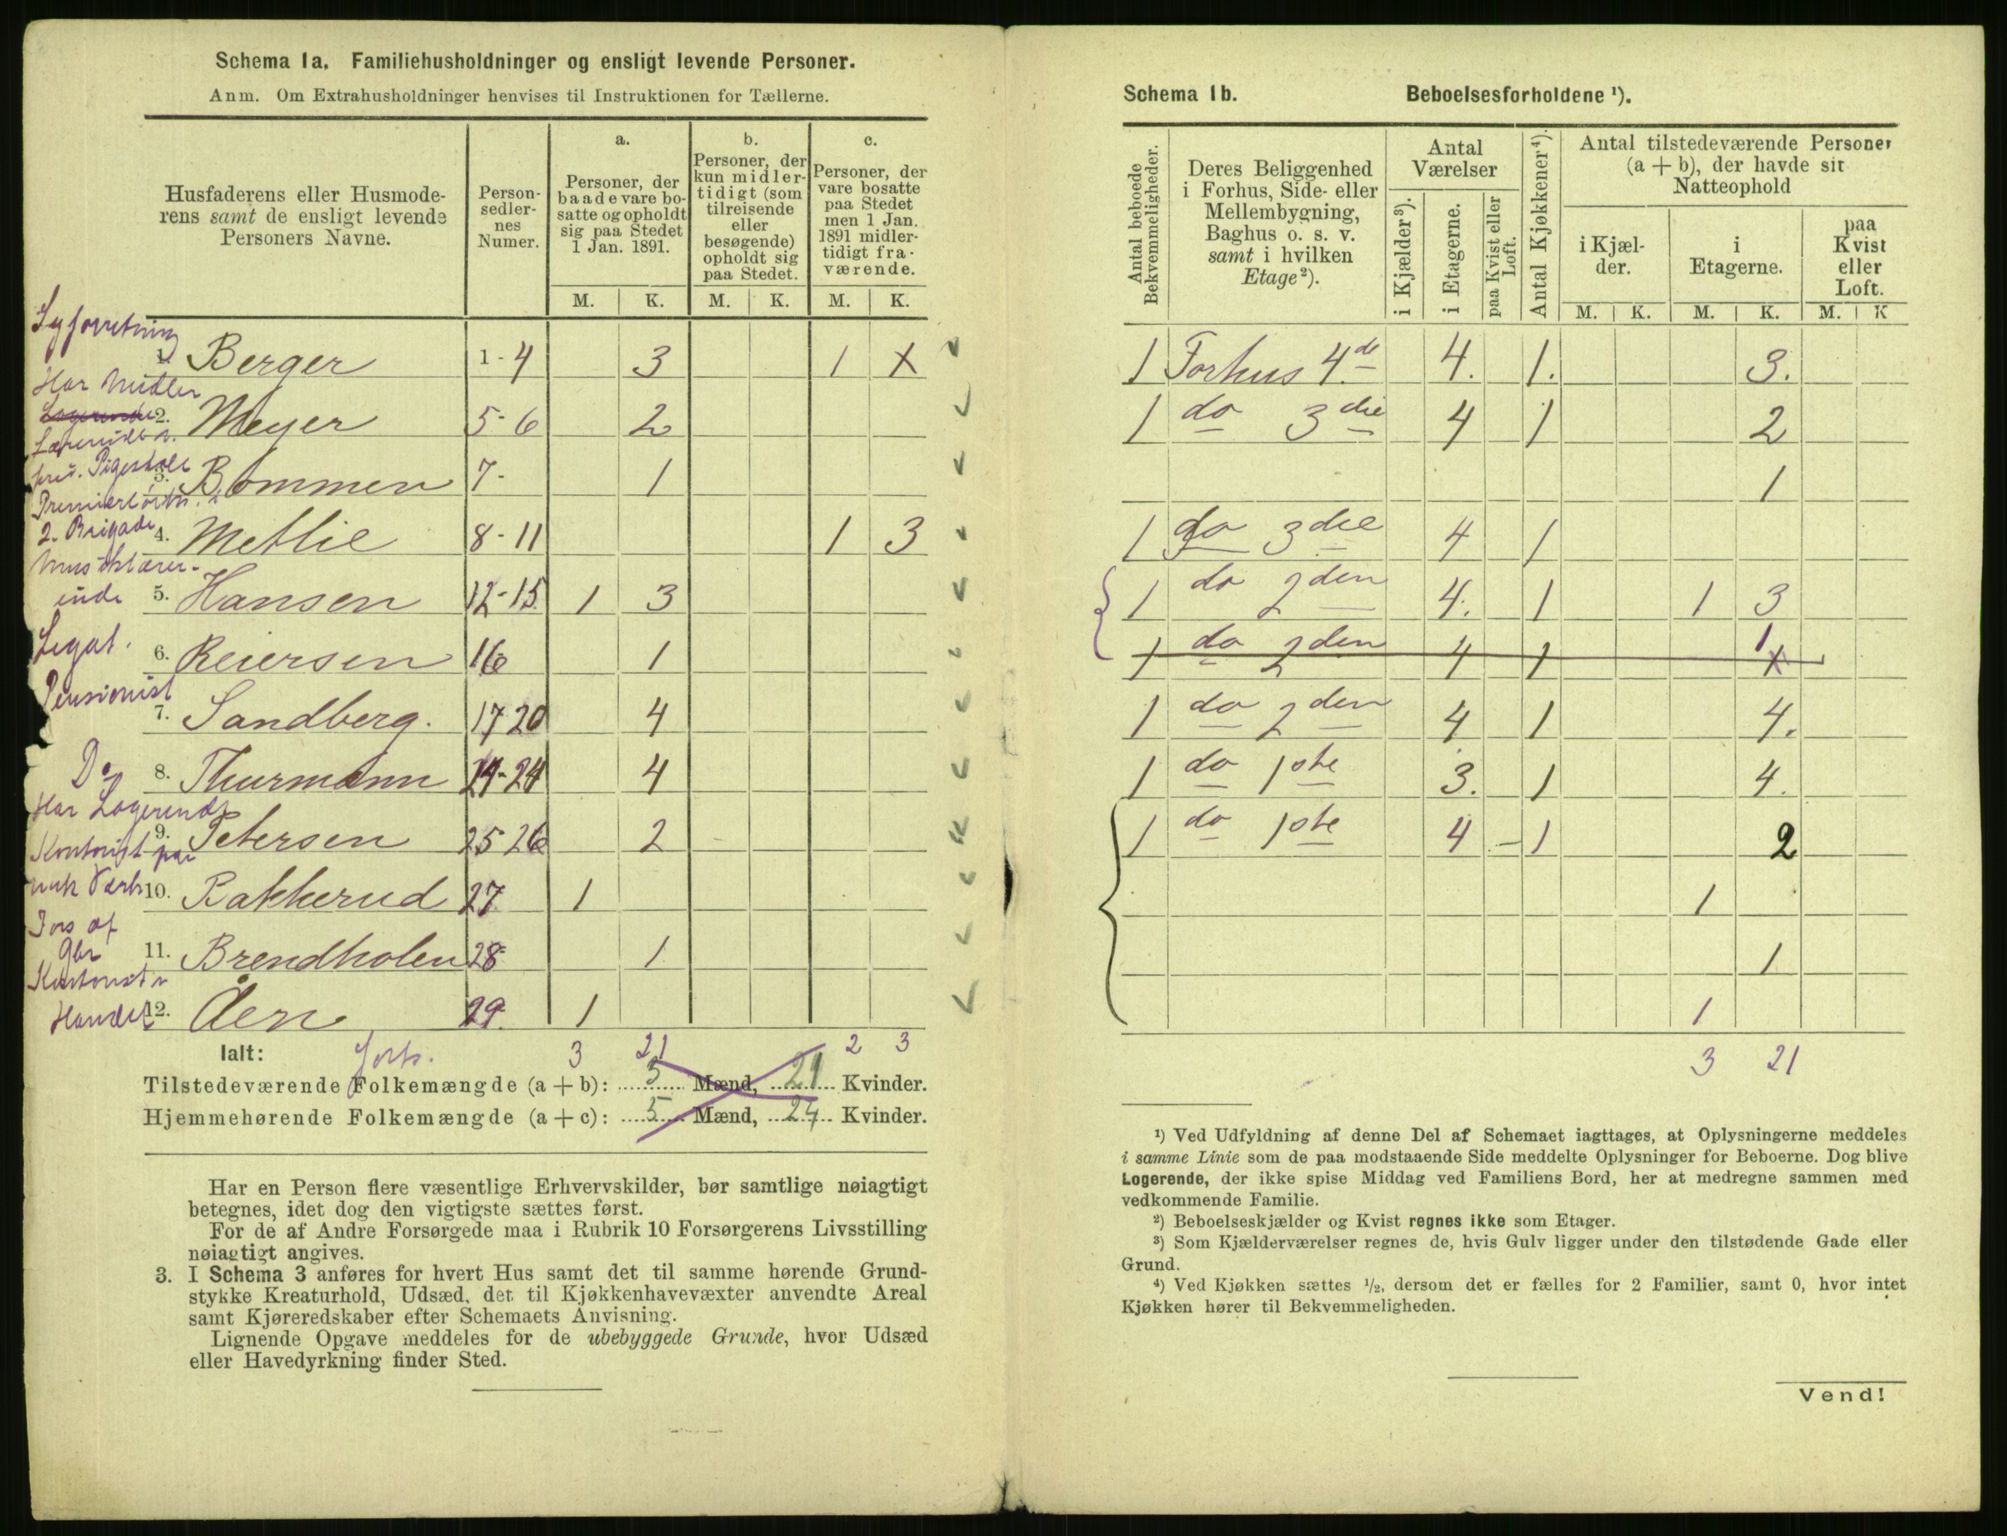 Schema 1a. Familiehusholdninger og ensligt levende Personer.
Anm. Om Extrahusholdninger henvises til Instruktionen for Tællerne.
Husfaderens eller Husmoderens samt de ensligt levende Personers Navne.
Personsedlernes Numer.
a.
Personer, der baade vare bosatte og opholdt sig paa Stedet 1 Jan. 1891.
b.
Personer, der kun midlertidigt (som tilreisende eller besøgende) opholdt sig paa Stedet.
c.
Personer, der vare bosatte paa Stedet men 1 Jan. 1891 midlertidigt fraværende.
M. K. M. K. M. K.
Syforretning
1. Berger 1-4 3 1 x
Har Midler
Logerende
2. Meyer 5-6 2
priv. Pigeskole
3. Bommen 7- 1
2. Brigade
4. Metlie 8-11 1 3
Musiklærer-
inde
5. Hansen 12-15 1 3
Legat.
6. Reiersen 16 1
Pensionist
7. Sandberg. 17-20 4
Do
8. Thurmann 21-24 4
Har Logerende
9. Petersen 25-26 2
Kontorist paa
mek Værks
10. Bakkerud 27 1
Fors af
11. Brendholen 28- 1
Kontorist v
Handel
12. Åen 29. 1
Ialt: Forts. 3 21 2 3
Tilstedeværende Folkemængde (a + b): 5 Mænd, 21 Kvinder.
Hjemmehørende Folkemængde (a + c): 5 Mænd, 24 Kvinder.
Har en Person flere væsentlige Erhvervskilder, bør samtlige nøiagtigt
betegnes, idet dog den vigtigste sættes først.
For de af Andre Forsørgede maa i Rubrik 10 Forsørgerens Livsstilling
nøiagtigt angives.
3. I Schema 3 anføres for hvert Hus samt det til samme hørende Grund-
stykke Kreaturhold, Udsæd, det til Kjøkkenhavevæxter anvendte Areal
samt Kjøreredskaber efter Schemaets Anvisning.
Lignende Opgave meddeles for de ubebyggede Grunde, hvor Udsæd
eller Havedyrkning finder Sted.
Schema 1b. Beboelsesforholdene ¹).
Antal beboede Bekvemmeligheder.
Deres Beliggenhed i Forhus, Side- eller Mellembygning, Baghus o. s. v. samt i hvilken Etage ²).
Antal Værelser
i Kjælder ³).
i Etagerne.
paa Kvist eller Loft.
Antal Kjøkkener ⁴).
Antal tilstedeværende Personer (a + b), der havde sit Natteophold
i Kjælder.
i Etagerne.
paa Kvist eller Loft.
M. K. M. K. M. K
1 Forhus 4de 4. 1. 3.
1 do 3die 4 1 2
1
1 do 3die 4 1
1 do 2den 4. 1 1 3
1 do 2den 4 1 1 x
1 do 2den 4 1 4.
1 do 1ste 3. 1 4.
1 do 1ste 4 - 1 2
1
1
1
3 21
¹) Ved Udfyldning af denne Del af Schemaet iagttages, at Oplysningerne meddeles
i samme Linie som de paa modstaaende Side meddelte Oplysninger for Beboerne. Dog blive
Logerende, der ikke spise Middag ved Familiens Bord, her at medregne sammen med
vedkommende Familie.
²) Beboelseskjælder og Kvist regnes ikke som Etager.
³) Som Kjælderværelser regnes de, hvis Gulv ligger under den tilstødende Gade eller
Grund.
⁴) Ved Kjøkken sættes ½, dersom det er fælles for 2 Familier, samt 0, hvor intet
Kjøkken hører til Bekvemmeligheden.
Vend!